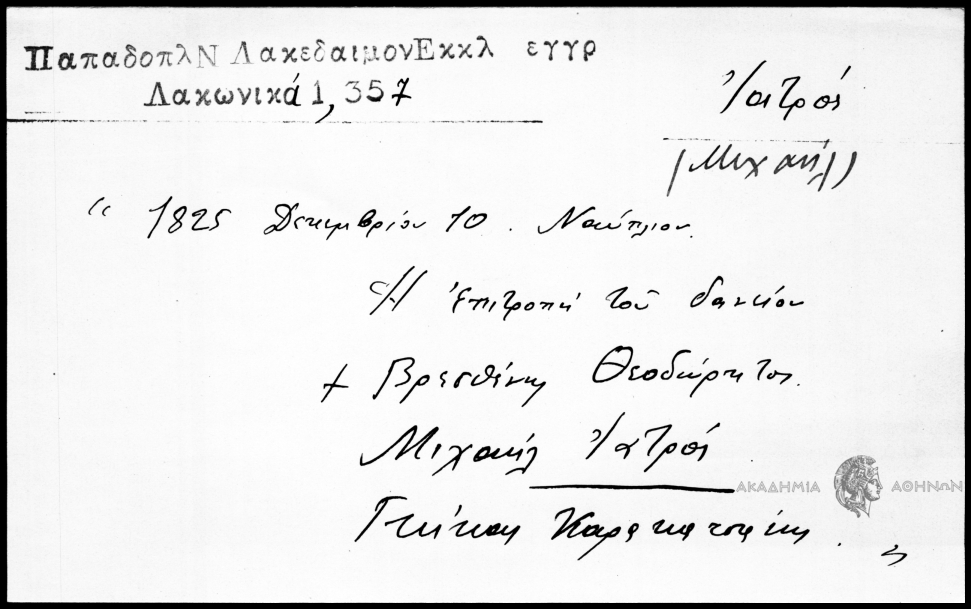 ΠαπαδοπλΝ ΛακεδαιμονΕκκλ εγγρ
Λακωνικά 1, 357
Ἰατρός
(Μιχαήλ)
“ 1825 Δεκεμβρίου 10. Ναύπλιον.
Ἡ Ἐπιτροπή τοῦ δανείου
+ Βρεσθένης Θεοδώρητος.
Μιχαήλ Ἰατρός
Γκίκας Καρακατσάνης. ”
ΑΚΑΔΗΜΙΑ ΑΘΗΝΩΝ